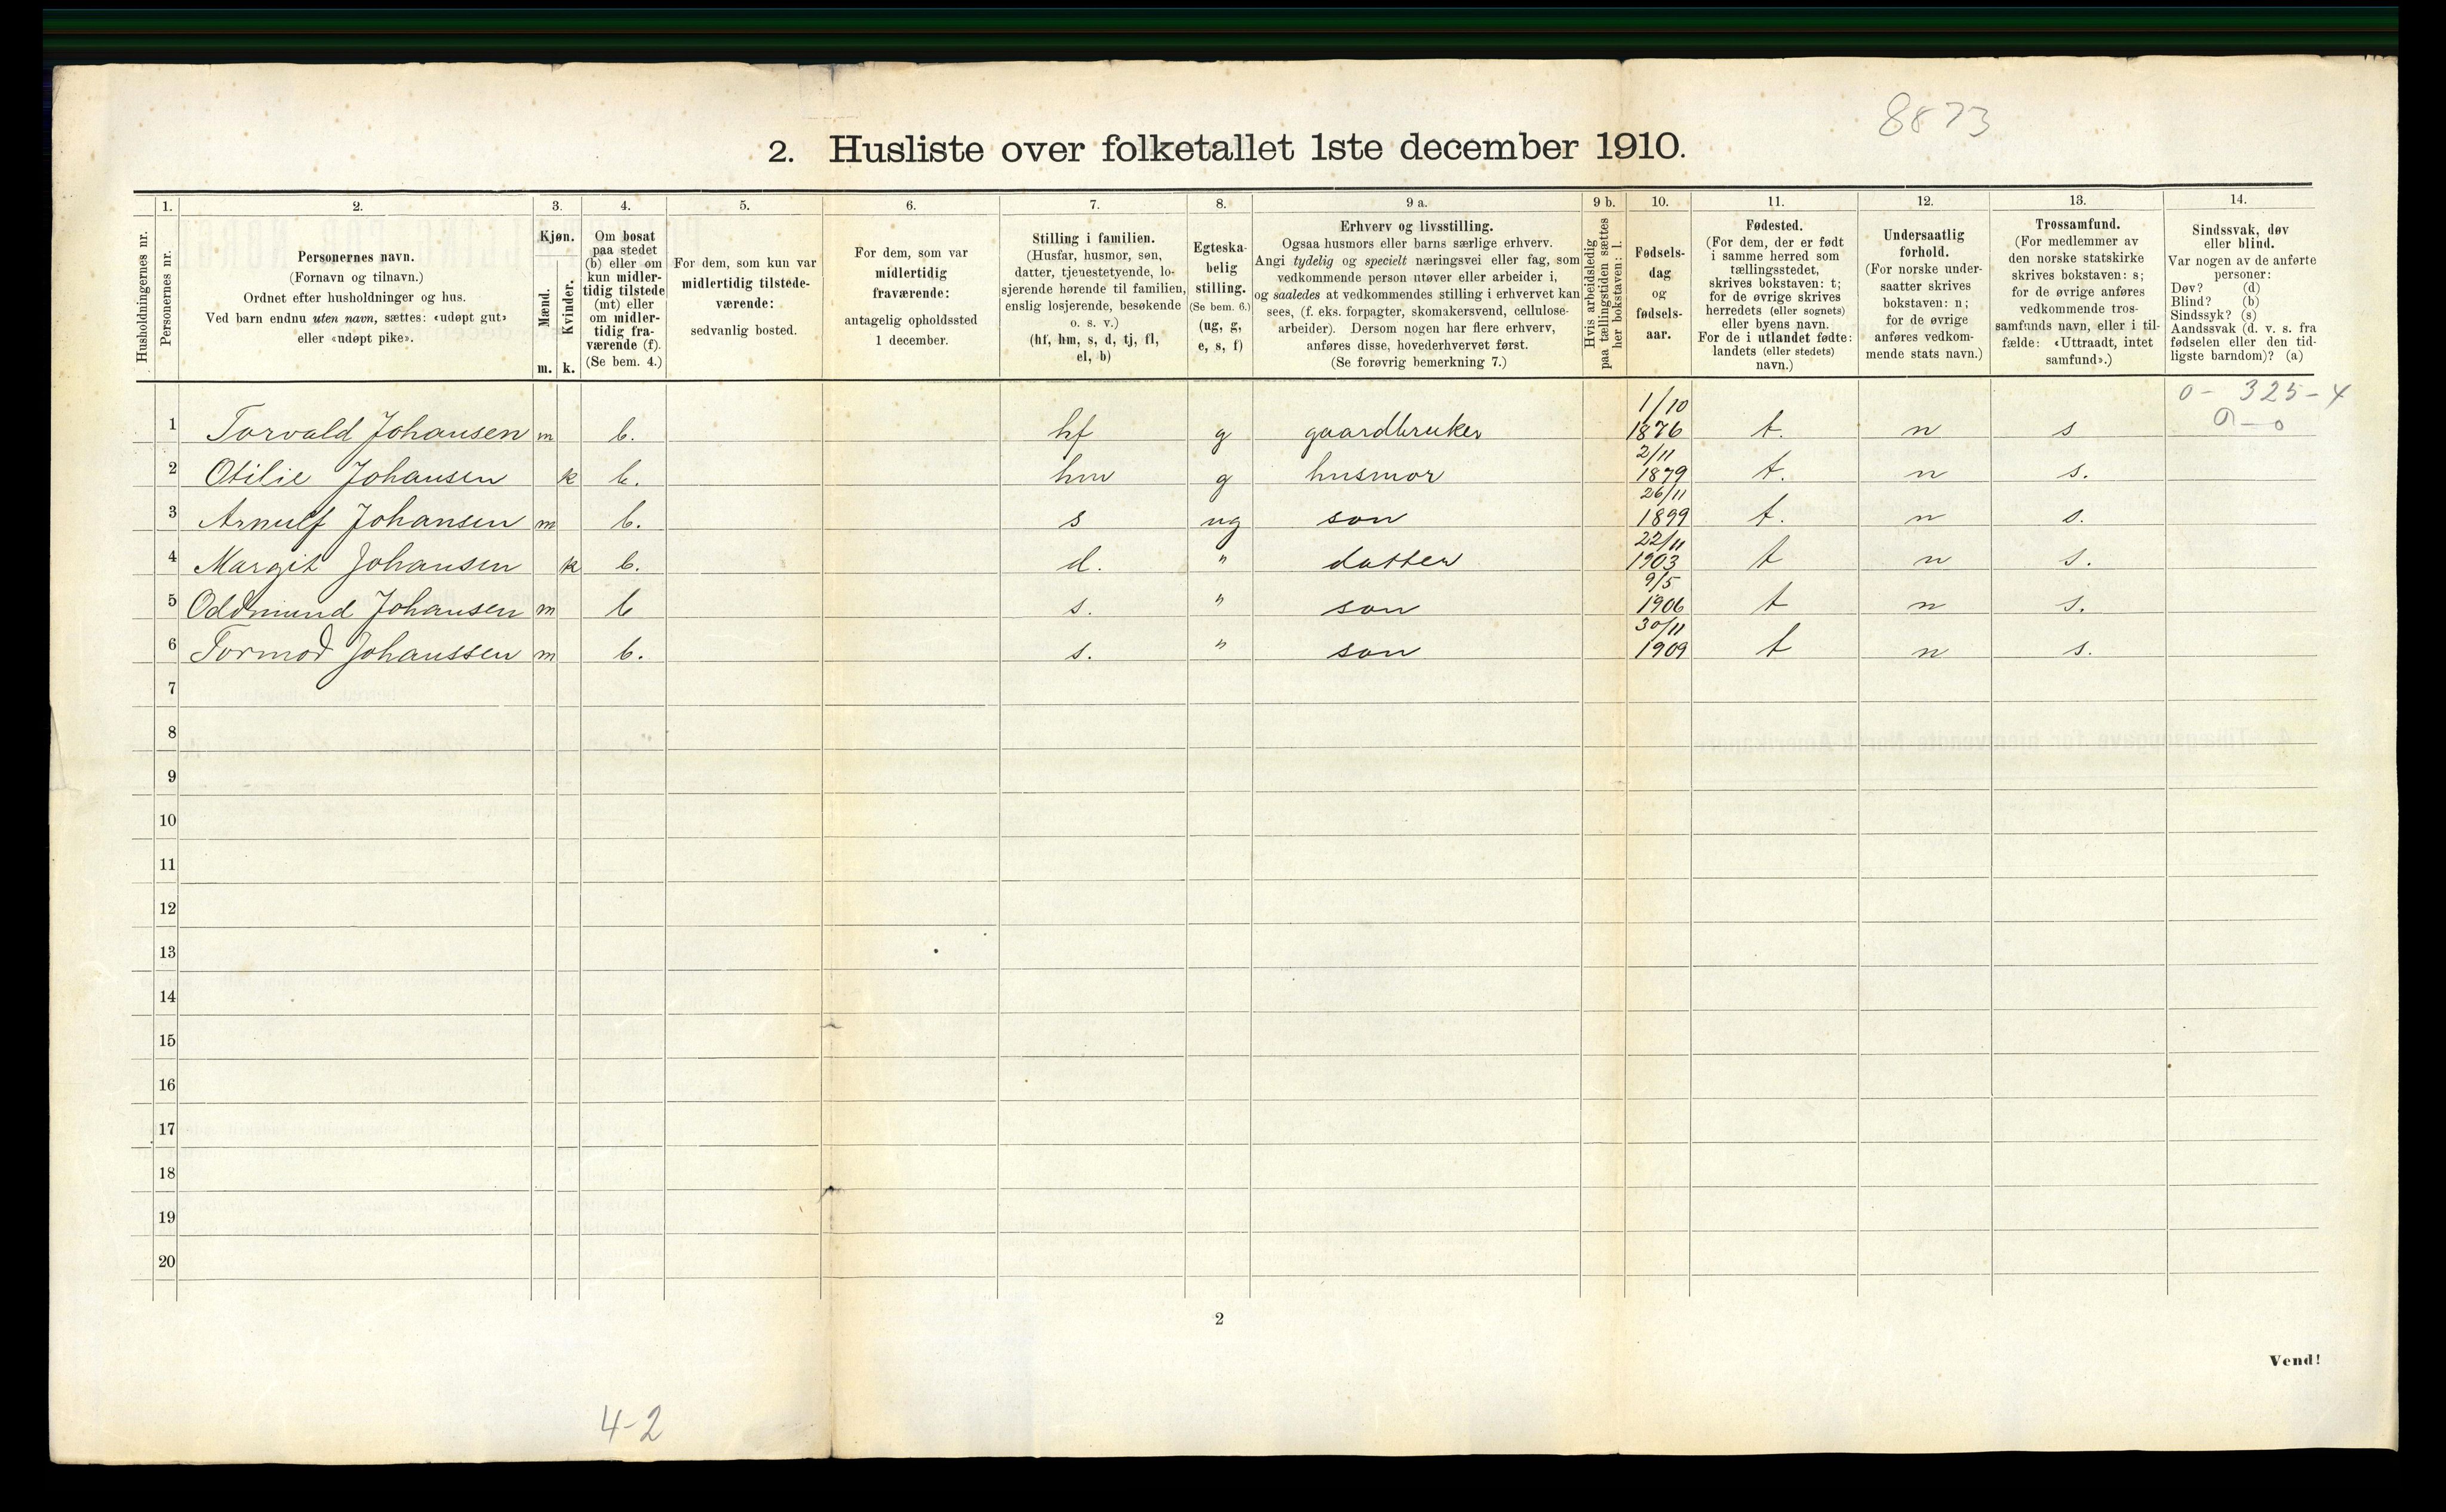 8873
2. Husliste over folketallet 1ste december 1910.
Husholdningernes nr.
1.
Personernes nr.
2.
Personernes navn.
(Fornavn og tilnavn.)
Ordnet efter husholdninger og hus.
Ved barn endnu uten navn, sættes: «udøpt gut»
eller «udøpt pike».
3.
Kjøn.
Mænd.
Kvinder.
m. k.
4.
Om bosat
paa stedet
(b) eller om
kun midler-
tidig tilstede
(mt) eller
om midler-
tidig fra-
værende (f).
(Se bem. 4.)
5.
For dem, som kun var
midlertidig tilstede-
værende:
sedvanlig bosted.
6.
For dem, som var
midlertidig
fraværende:
antagelig opholdssted
1 december.
7.
Stilling i familien.
(Husfar, husmor, søn,
datter, tjenestetyende, lo-
sjerende hørende til familien,
enslig losjerende, besøkende
o. s. v.)
(hf, hm, s, d, tj, fl,
el, b)
8.
Egteska-
belig
stilling.
(Se bem. 6.)
(ug, g,
e, s, f)
9 a.
Erhverv og livsstilling.
Ogsaa husmors eller barns særlige erhverv.
Angi tydelig og specielt næringsvei eller fag, som
vedkommende person utøver eller arbeider i,
og saaledes at vedkommendes stilling i erhvervet kan
sees, (f. eks. forpagter, skomakersvend, cellulose-
arbeider). Dersom nogen har flere erhverv,
anføres disse, hovederhvervet først.
(Se forøvrig bemerkning 7.)
9 b.
Hvis arbeidsledig
paa tællingstiden sættes
her bokstaven: l.
10.
Fødsels-
dag
og
fødsels-
aar.
11.
Fødested.
(For dem, der er født
i samme herred som
tællingsstedet,
skrives bokstaven: t;
for de øvrige skrives
herredets (eller sognets)
eller byens navn.
For de i utlandet fødte:
landets (eller stedets)
navn.)
12.
Undersaatlig
forhold.
(For norske under-
saatter skrives
bokstaven: n;
for de øvrige
anføres vedkom-
mende stats navn.)
13.
Trossamfund.
(For medlemmer av
den norske statskirke
skrives bokstaven: s;
for de øvrige anføres
vedkommende tros-
samfunds navn, eller i til-
fælde: «Uttraadt, intet
samfund».)
14.
Sindssvak, døv
eller blind.
Var nogen av de anførte
personer:
Døv? (d)
Blind? (b)
Sindssyk? (s)
Aandssvak (d. v. s. fra
fødselen eller den tid-
ligste barndom)? (a)
0 - 325 - 4
0 - 0
1 Torvald Johansen m b. hf g gaardbruker 1/10 1876 t. n s
2 Otilie Johansen k b. hm g husmor 2/11 1879 t. n s.
3 Arnulf Johansen m b. s ug son 26/11 1899 t. n s.
4 Margit Johansen k b. d. " datter 22/11 1903 t n s.
5 Oddmund Johansen m b s. " son 9/5 1906 t n s.
6 Tormod Johanssen m b. s. " son 30/11 1909 t n s.
7
8
9
10
11
12
13
14
15
16
17
18
19
20
2
Vend!
4-2